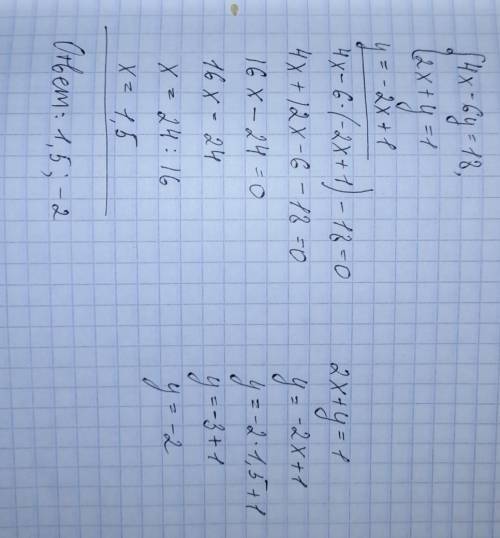 {4x-6y=18,
{2x+y=1
y=-2x+1
4x-6·(-2x+1)-18=0
4x+12x-6-18=0
16x-24=0
16x=24
x=24:16
x=1,5
2x+y=1
y=-2x+1
y=-2·1,5+1
y=-3+1
y=-2
Ответ: 1,5; -2